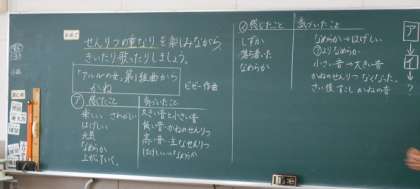 めあて
せんりつの重なりを楽しみながら
きいたり歌ったりしましょう。
「アルルの女」第1組曲から
かね
ビゼー作曲
ア 感じたこと 気づいたこと
楽しい さわがしい
はげしい
元気
なめらか
上がっていく。
大きい音と小さい音
低い音・かねのせんりつ
高い音・主なせんりつ
はげしい⇔なめらか
イ 感じたこと 気づいたこと
しずか
落ち着いた
なめらか
なめらか⇔はげしい
アよりなめらか
小さい音→大きい音
かねのせんりつなくなった。
さい後すこしかねの音
ア
↓
イ
↓
?